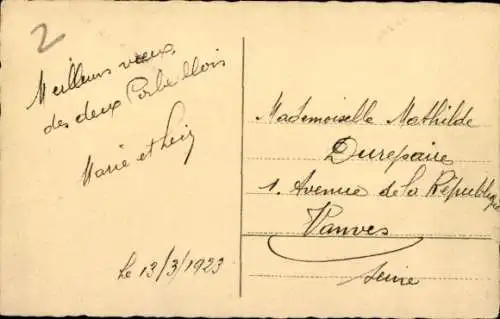 2
Meilleurs vœux
des deux Corbeillois
Marie et
Le 13/3/1923
Mademoiselle Mathilde
Durepaire
1. Avenue de la République
Vanves
Seine